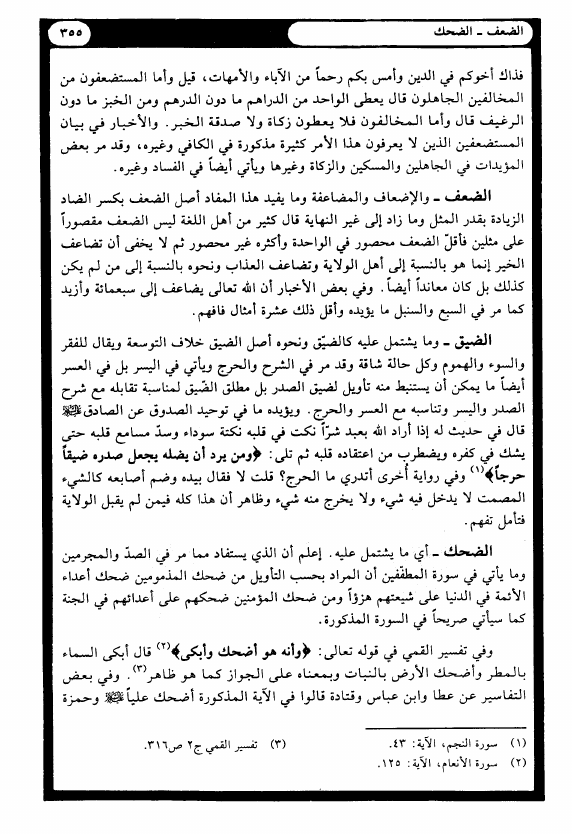 الضعف ـ الضحك
٣٥٥
فذاك أخوكم في الدين وأمس بكم رحماً من الآباء والأمهات، قيل وأما المستضعفون من
المخالفين الجاهلون قال يعطى الواحد من الدراهم ما دون الدرهم ومن الخبز ما دون
الرغيف قال وأما المخالفون فلا يعطون زكاة ولا صدقة الخبر. والأخبار في بيان
المستضعفين الذين لا يعرفون هذا الأمر كثيرة مذكورة في الكافي وغيره، وقد مر بعض
المؤيدات في الجاهلين والمسكين والزكاة وغيرها ويأتي أيضاً في الفساد وغيره.
الضعف ـ والإضعاف والمضاعفة وما يفيد هذا المفاد أصل الضعف بكسر الضاد
الزيادة بقدر المثل وما زاد إلى غير النهاية قال كثير من أهل اللغة ليس الضعف مقصوراً
على مثلين فأقلّ الضعف محصور في الواحدة وأكثره غير محصور ثم لا يخفى أن تضاعف
الخير إنما هو بالنسبة إلى أهل الولاية وتضاعف العذاب ونحوه بالنسبة إلى من لم يكن
كذلك بل كان معانداً أيضاً. وفي بعض الأخبار أن الله تعالى يضاعف إلى سبعمائة وأزيد
كما مر في السبع والسنبل ما يؤيده وأقل ذلك عشرة أمثال فافهم.
الضيق ـ وما يشتمل عليه كالضيّق ونحوه أصل الضيق خلاف التوسعة ويقال للفقر
والسوء والهموم وكل حالة شاقة وقد مر في الشرح والحرج ويأتي في اليسر بل في العسر
أيضاً ما يمكن أن يستنبط منه تأويل لضيق الصدر بل مطلق الضّيق لمناسبة تقابله مع شرح
الصدر واليسر وتناسبه مع العسر والحرج. ويؤيده ما في توحيد الصدوق عن الصادق ﵇
قال في حديث له إذا أراد الله بعبد شرّاً نكت في قلبه نكتة سوداء وسدّ مسامع قلبه حتى
يشك في كفره ويضطرب من اعتقاده قلبه ثم تلى: ﴿ومن يرد أن يضله يجعل صدره ضيقاً
حرجاً﴾(١) وفي رواية أُخرى أتدري ما الحرج؟ قلت لا فقال بيده وضم أصابعه كالشيء
المصمت لا يدخل فيه شيء ولا يخرج منه شيء وظاهر أن هذا كله فيمن لم يقبل الولاية
فتأمل تفهم.
الضحك ـ أي ما يشتمل عليه. إعلم أن الذي يستفاد مما مر في الصدّ والمجرمين
وما يأتي في سورة المطفّفين أن المراد بحسب التأويل من ضحك المذمومين ضحك أعداء
الأئمة في الدنيا على شيعتهم هزؤاً ومن ضحك المؤمنين ضحكهم على أعدائهم في الجنة
كما سيأتي صريحاً في السورة المذكورة.
وفي تفسير القمي في قوله تعالى: ﴿وأنه هو أضحك وأبكى﴾(٢) قال أبكى السماء
بالمطر وأضحك الأرض بالنبات وبمعناه على الجواز كما هو ظاهر(٣). وفي بعض
التفاسير عن عطا وابن عباس وقتادة قالوا في الآية المذكورة أضحك علياً ﵇ وحمزة
(١) سورة النجم، الآية: ٤٣.
(٣) تفسير القمي ج٢ ص٣١٦.
(٢) سورة الأنعام، الآية: ١٢٥.